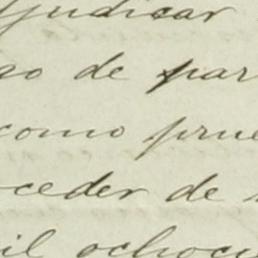 judicar
go de par
como prue
ceder de
il ochoci